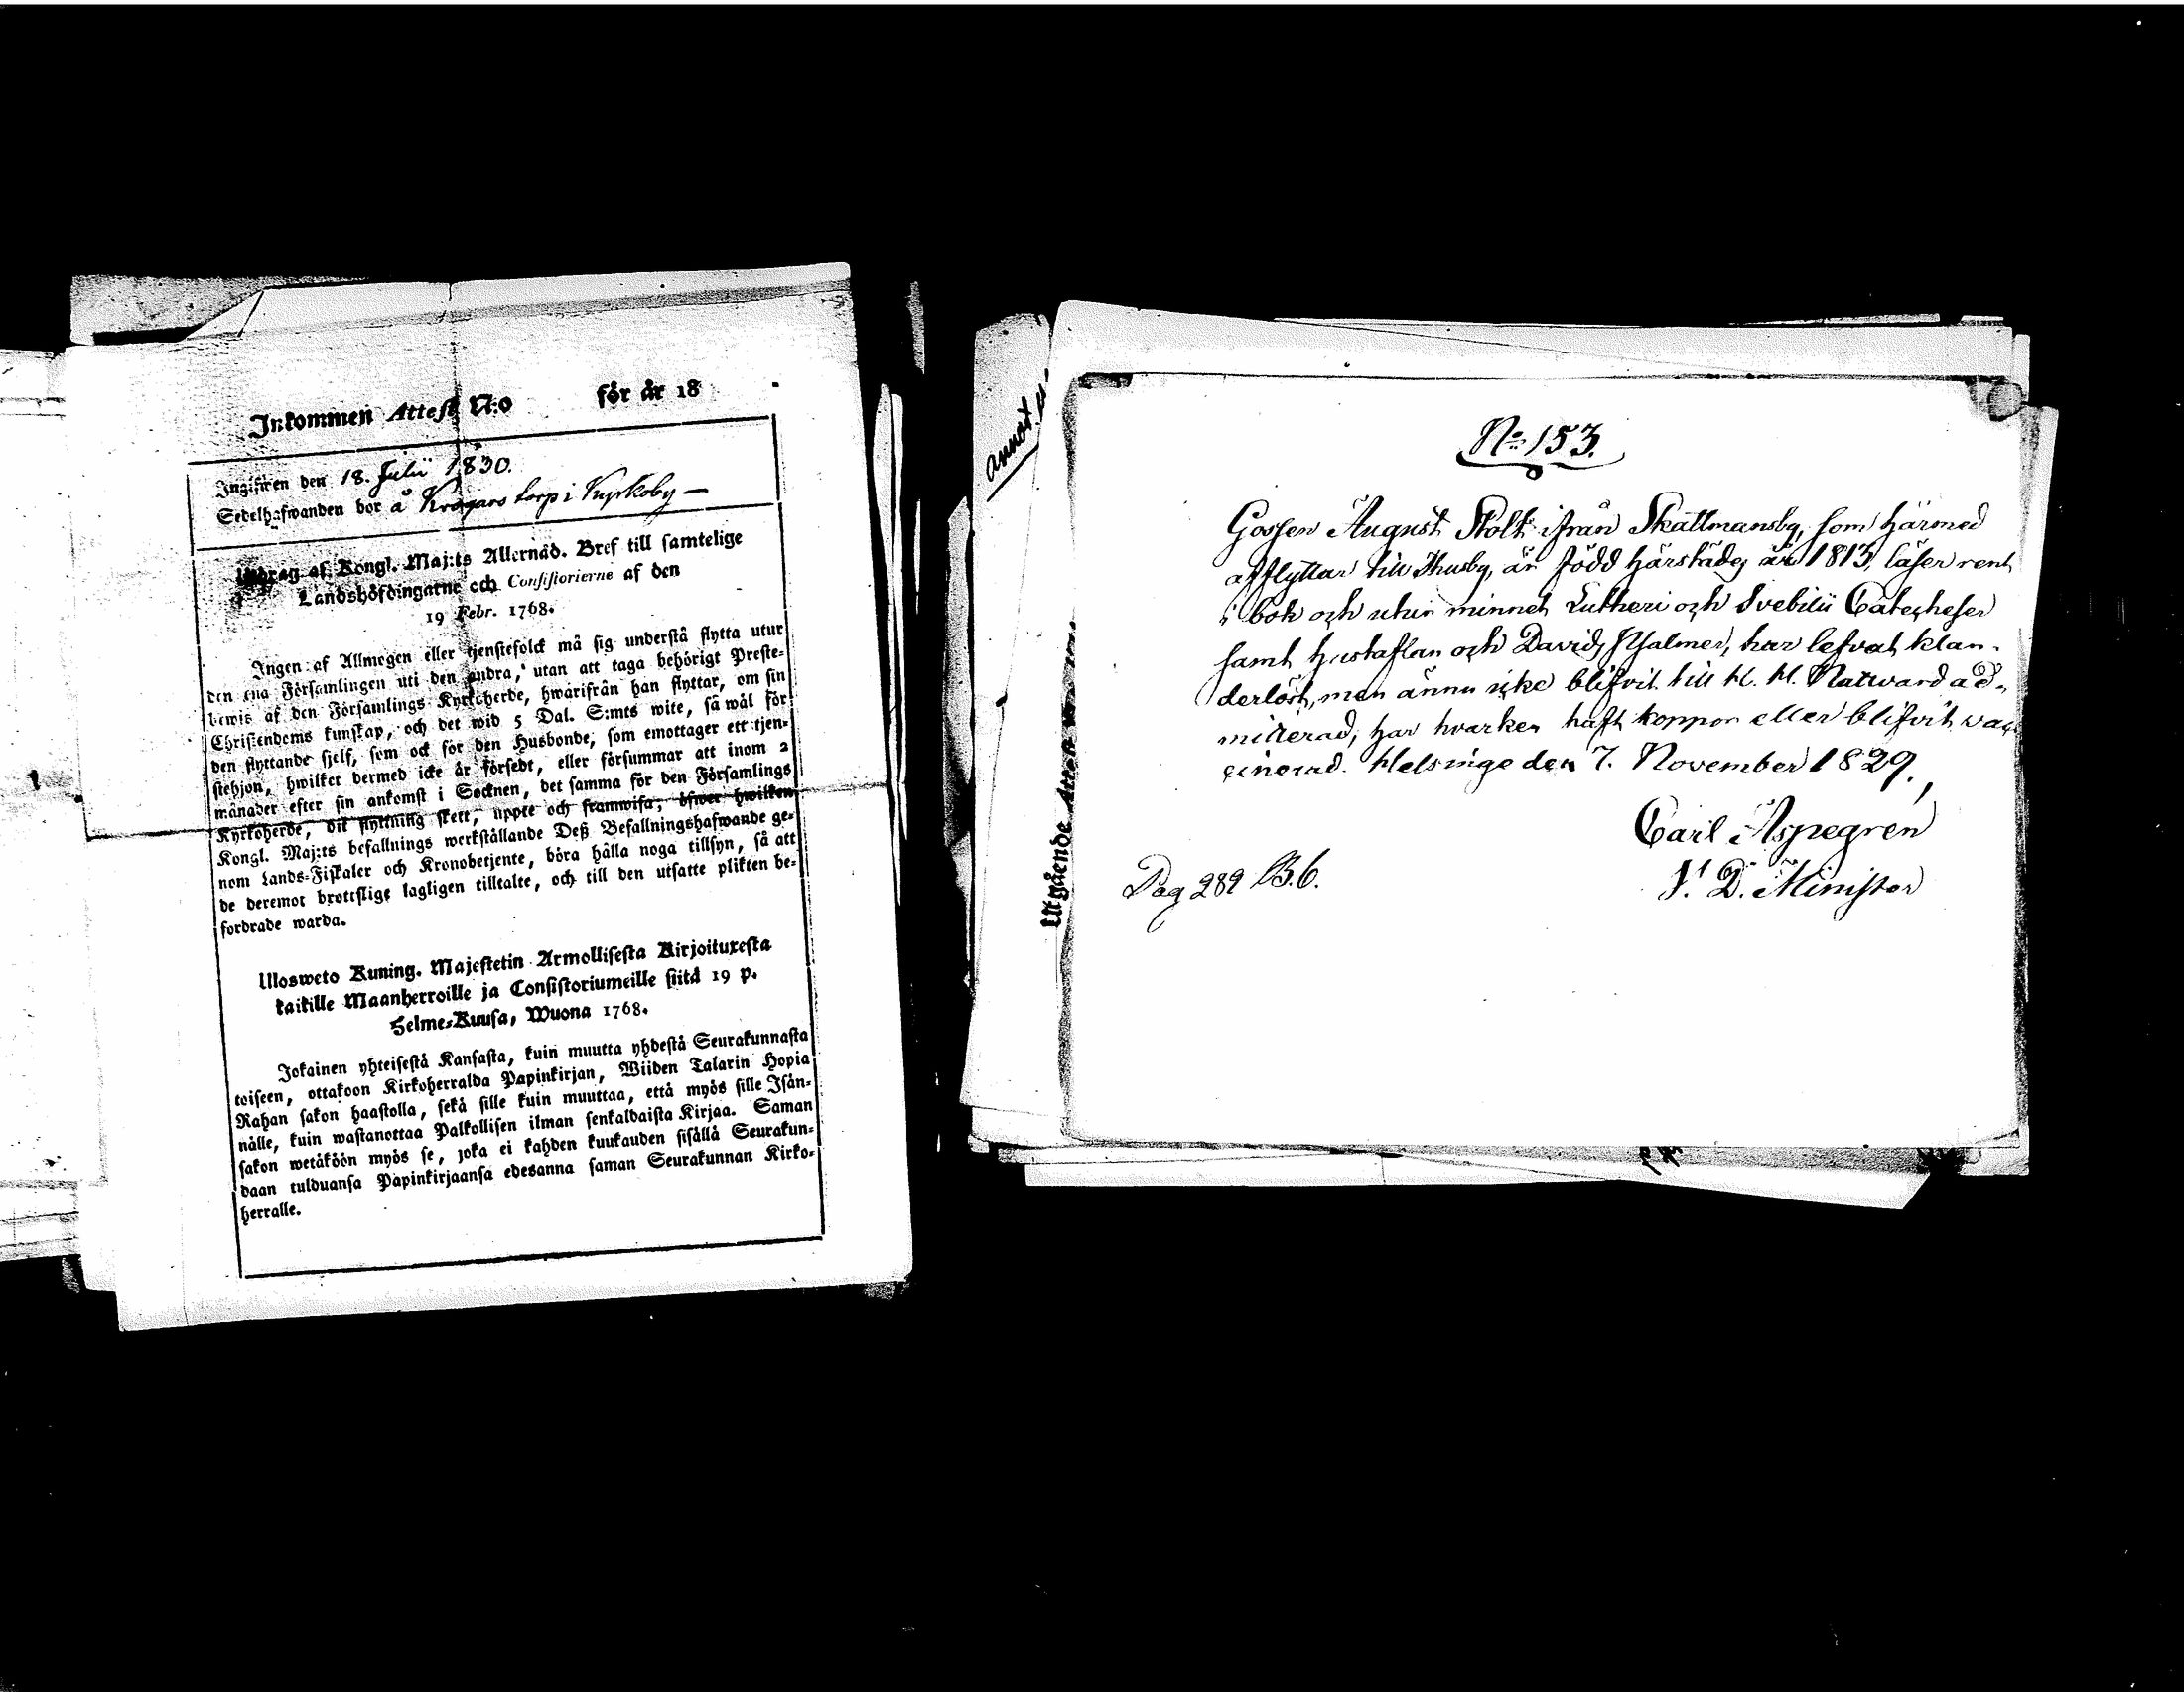 Inkommen Attest N:o för år 18
Ingifwen den 18. Julii 1830.
Sedelhafwanden bor å Krogars torp i Kyrkoby —
Utdrag af Kongl. Maj:ts Allernåd. Bref till samtelige
Landshöfdingarne och Consistorierne af den
19 Febr. 1768.
Ingen af Allmogen eller tjenstefolck må sig understå flytta utur
den ena Församlingen uti den andra, utan att taga behörigt Preste-
bewis af den Församlings Kyrkoherde, hwarifrån han flyttar, om sin
Christendoms kunskap, och det wid 5 Dal. S:mts wite, så wål för
den flyttande sjelf, som ock för den Husbonde, som emottager ett tjen-
stehjon, hwilket dermed icke år försedt, eller försummar att inom 2
månader efter sin ankomst i Socknen, det samma för den Församlings
Kyrkoherde, dit flyttning skett, uppte och framwisa; öfwer hwilken
Kongl. Maj:ts befallnings werkstållande Deß Befallningshafwande ge-
nom Lands-Fiskaler och Kronobetjente, böra hålla noga tillsyn, så att
de deremot brottslige lagligen tilltalte, och till den utsatte plikten be-
fordrade warda.
Ulosweto Kuning. Majestetin Armollisesta Kirjoituxesta
kaikille Maanherroille ja Consistoriumeille siitå 19 p.
Helme-Kuusa, Wuona 1768.
Jokainen yhteisestå Kansasta, kuin muutta yhdestå Seurakunnasta
toiseen, ottakoon Kirkoherralda Papinkirjan, Wiiden Talarin Hopia
Rahan sakon haastolla, sekå sille kuin muuttaa, ettå myös sille Isån-
nålle, kuin wastanottaa Palkollisen ilman senkaldaista Kirjaa. Saman
sakon wetåköön myös se, joka ei kahden kuukauden sisållå Seurakun-
daan tulduansa Papinkirjaansa edesanna saman Seurakunnan Kirko-
herralle.
annot.
Utgående Attest
No 153.
Gossen August Stolt ifrån Skattmansby, som härmed
afflyttar till Thusby, är född härstädes år 1813, läser rent
i bok och utur minnet Lutheri och Svebilii Catecheser
samt hustaflan och Davids Psalmer, har lefvat klan-
derlöst, men ännu icke blifvit till H. H. Nattward ad-
mitterad, har hvarken haft koppor eller blifvit vac-
cinerad. Helsinge den 7. November 1829.
Carl Aspegrén
V. D. Minister
Pag 282 B. 6.